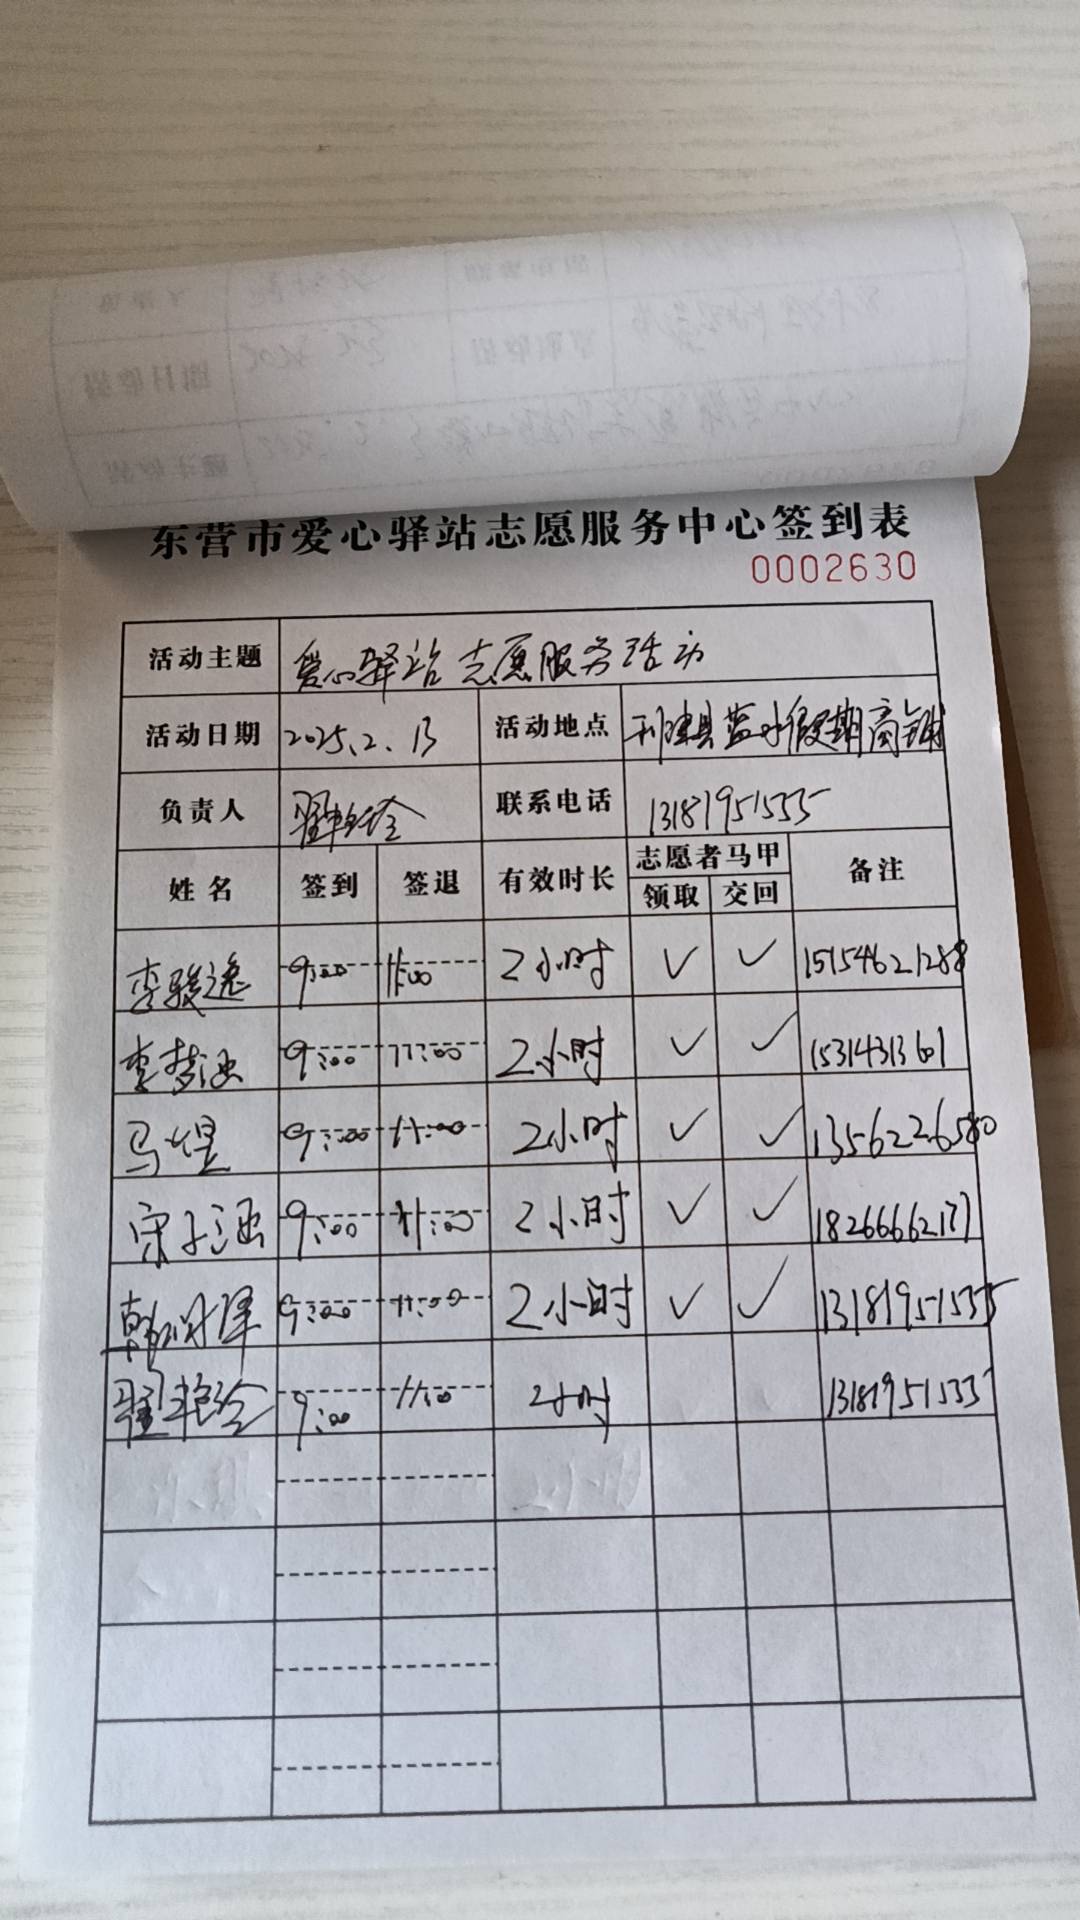 东营市爱心驿站志愿服务中心签到表
0002630
活动主题 爱心驿站志愿服务活动
活动日期 2025.2.13 活动地点 利津县蓝水假期商铺
负责人 联系电话 13181951535
姓名 签到 签退 有效时长 志愿者马甲 备注
领取 交回
李骏逸 9:00 11:00 2小时 ✓ ✓ 15154621288
李梦涵 9:00 11:00 2小时 ✓ ✓ 15314313601
马煜 9:00 11:00 2小时 ✓ ✓ 1356226580
宋子涵 9:00 11:00 2小时 ✓ ✓ 18266662177
韩 泽 9:00 11:00 2小时 ✓ ✓ 13181951535
9:00 11:00 2小时 13181951535